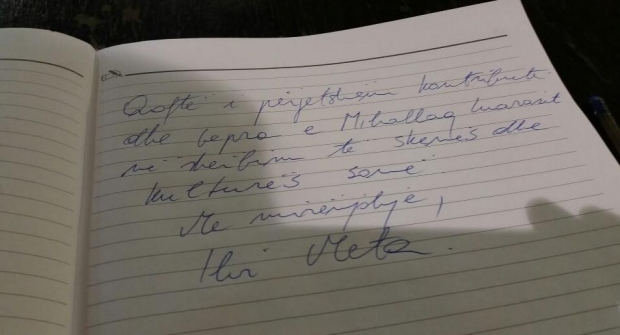 Qoftë i përjetshëm kontributi
dhe vepra e Mihallaq Luarasit
në shërbim të skenës dhe
kulturës sonë.
Me mirënjohje,
Ilir Meta.